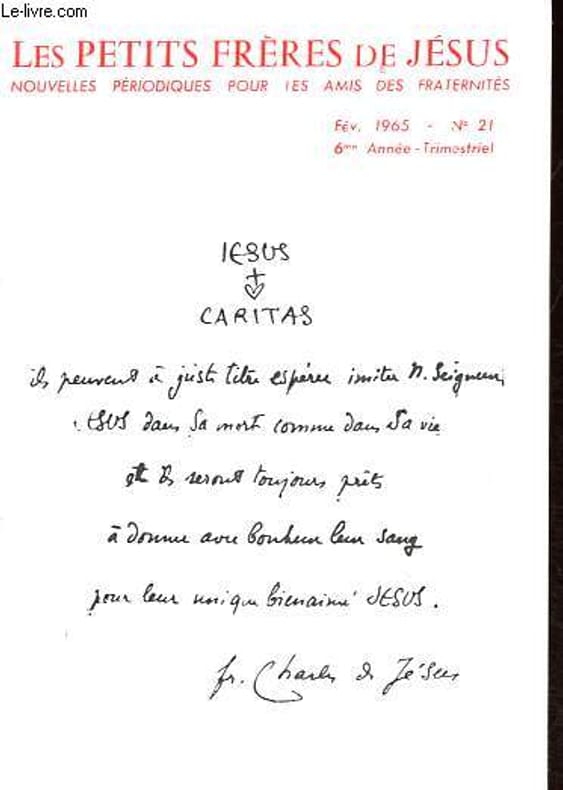 Le-livre.com
LES PETITS FRÈRES DE JÉSUS
NOUVELLES PÉRIODIQUES POUR LES AMIS DES FRATERNITÉS
Fév. 1965 - Nº 21
6me Année - Trimestriel
IESUS
CARITAS
ils peuvent à juste titre espérer imiter N. Seigneur
JESUS dans Sa mort comme dans Sa vie
et ils seront toujours prêts
à donner avec bonheur leur sang
pour leur unique bienaimé JESUS.
fr. Charles de Jésus